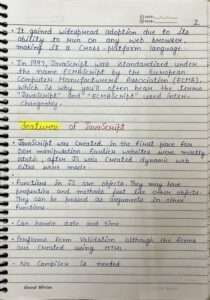 2
• It gained widespread adoption due to its
ability to run on any web browser,
making it a cross-platform language.
• In 1997, JavaScript was standardized under
the name ECMAScript by the European
Computer Manufacturers Association (ECMA),
which is why you'll often hear the terms
"JavaScript" and "ECMAScript" used inter-
changeably.
Features of JavaScript
• JavaScript was created in the first place for
DOM manipulation. Earlier websites were mostly
static, after JS was created dynamic web
sites were made.
• Functions in JS are objects. They may have
properties and methods just like other objects.
They can be passed as arguments in other
functions.
• Can handle date and time
• Performs Form Validation although the forms
are created using HTML.
• No Compiler is needed